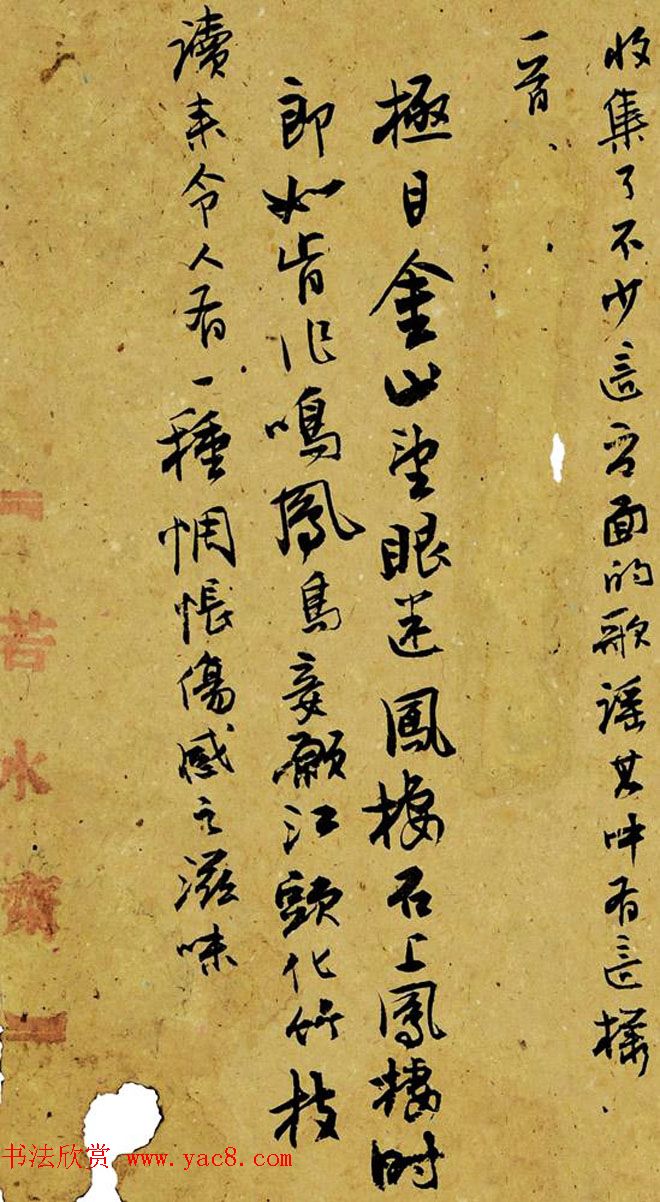 收集了不少這方面的歌谣其中有這樣
一首、
極目金山望眼迷鳳樓石上鳳棲时
郎如肯作鳴鳳鳥妾願江頭化竹枝
讀来令人有一種惆悵傷感之滋味
若水齋
书法欣赏 www.yac8.com